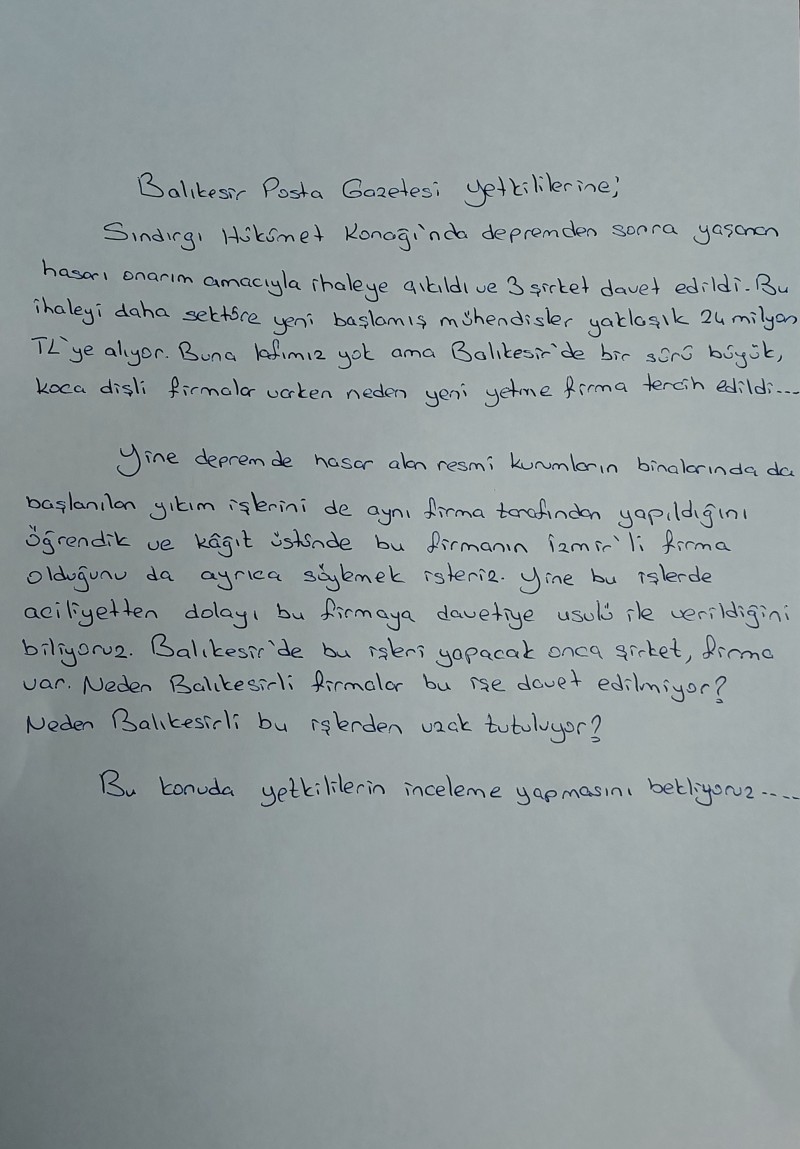 Balıkesir Posta Gazetesi yetkililerine;
Sındırgı Hükûmet Konağı'nda depremden sonra yaşanan
hasarı onarım amacıyla ihaleye çıkıldı ve 3 şirket davet edildi. Bu
ihaleyi daha sektöre yeni başlamış mühendisler yaklaşık 24 milyon
TL'ye alıyor. Buna lafımız yok ama Balıkesir'de bir sürü büyük,
koca dişli firmalar varken neden yeni yetme firma tercih edildi...
Yine depremde hasar alan resmi kurumların binalarında da
başlanılan yıkım işlerini de aynı firma tarafından yapıldığını
öğrendik ve kâğıt üstünde bu firmanın İzmir'li firma
olduğunu da ayrıca söylemek isteriz. Yine bu işlerde
aciliyetten dolayı bu firmaya davetiye usulü ile verildiğini
biliyoruz. Balıkesir'de bu işleri yapacak onca şirket, firma
var. Neden Balıkesirli firmalar bu işe davet edilmiyor?
Neden Balıkesirli bu işlerden uzak tutuluyor?
Bu konuda yetkililerin inceleme yapmasını bekliyoruz....